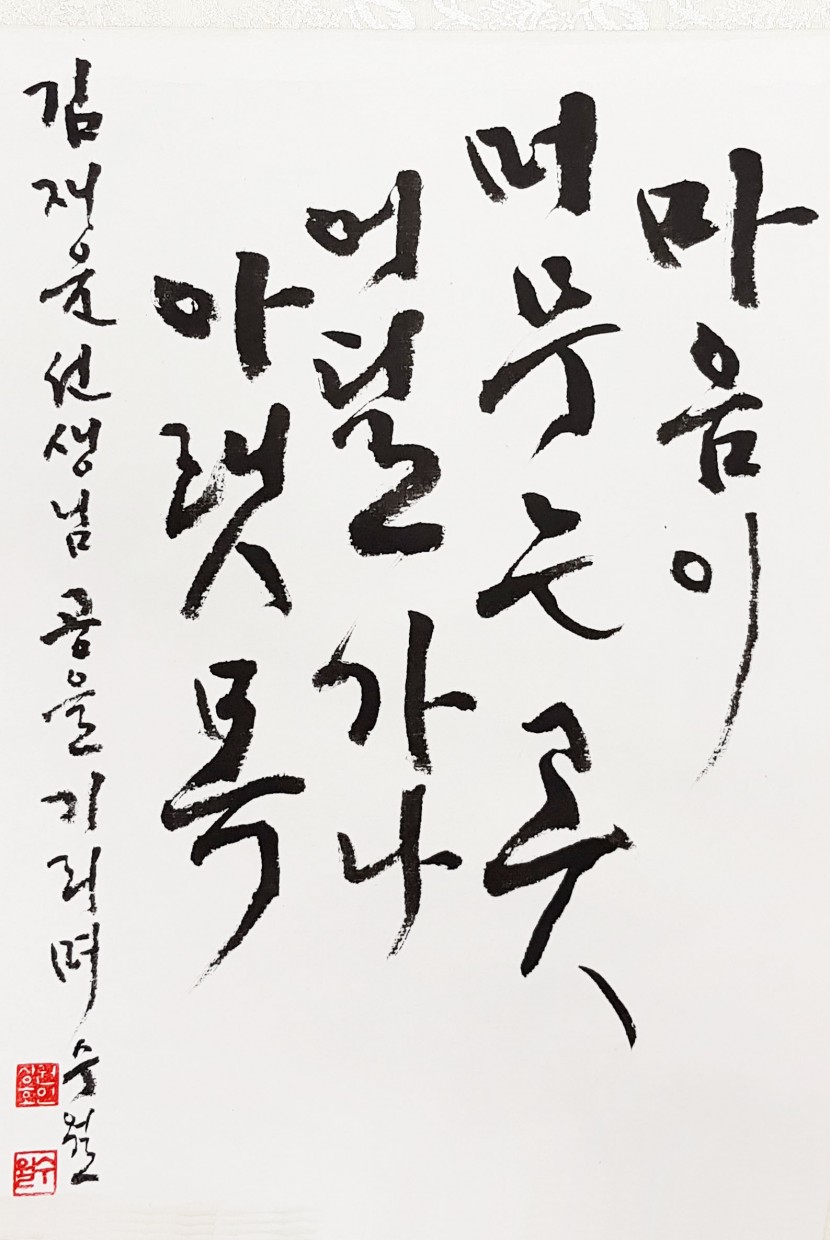 마음이
머무는 곳
어딜 가나
아랫목
김재윤 선생님 공을 기리며 수월